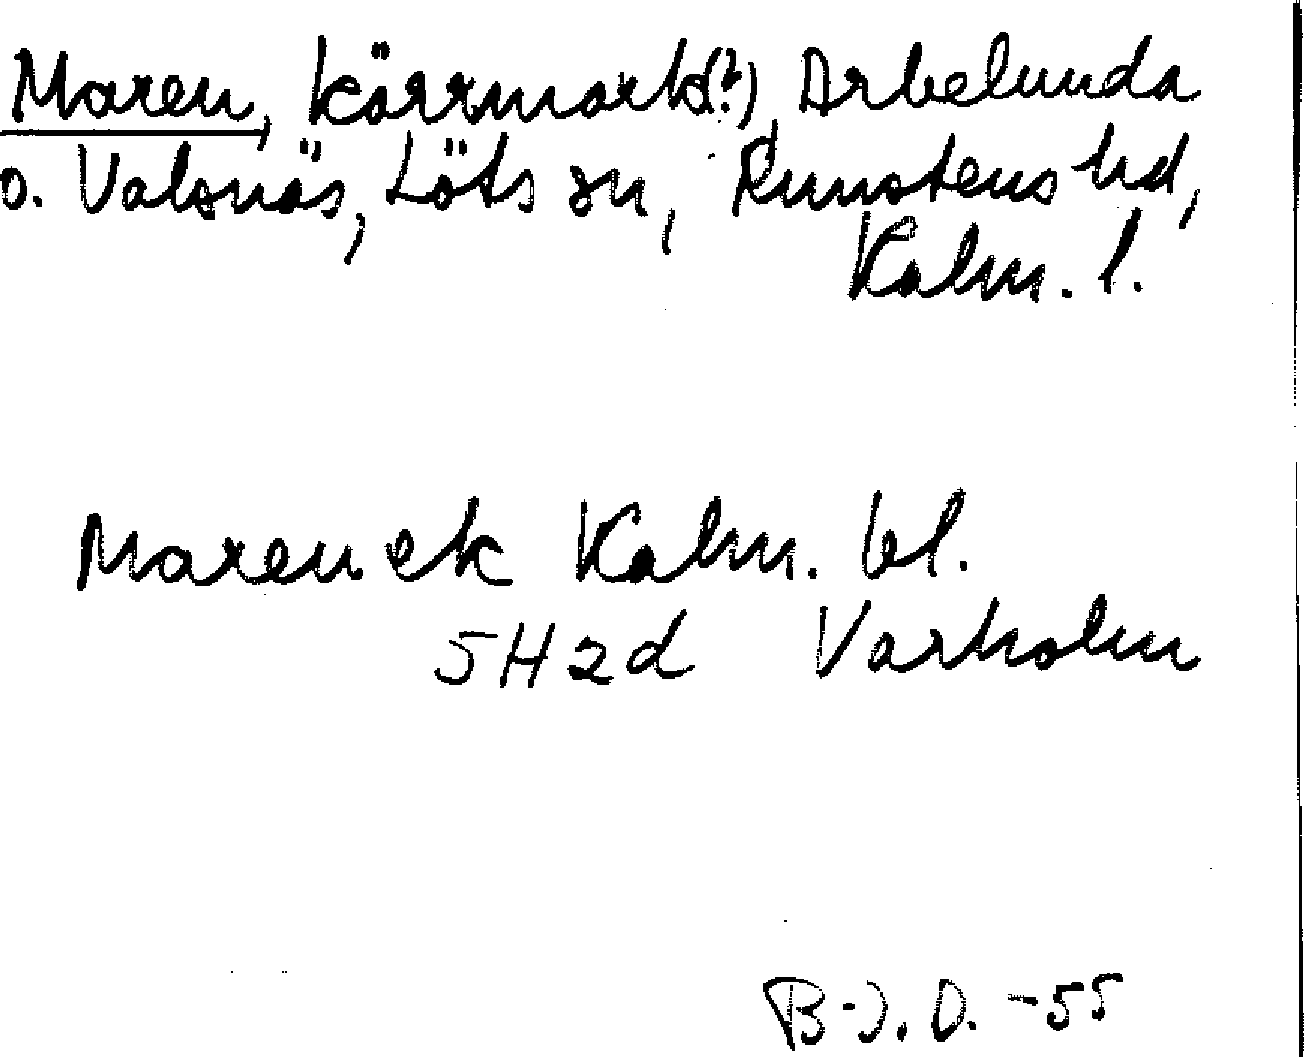 Maren, kärrmark(?), Arbelunda
o. Valsnäs, Löts sn, Runstens hd,
Kalm. l.
Maren ek Kalm. bl.
5H2d Varholm
B-J. O. -55